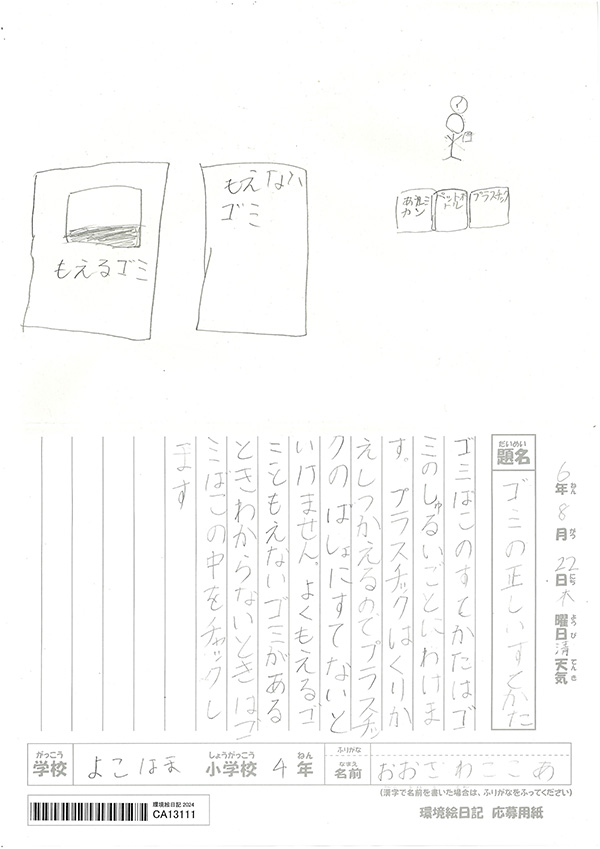 もえるゴミ
もえない
ゴミ
?
あきミ
カン
ペットボ
トル
プラスチック
6年 8月 22日 木曜日 清天気
ねん がつ にち ようび てんき
だいめい
題名
ゴミの正しいすてかた
ゴミばこのすてかたはゴ
ミのしゅるいごとにわけま
す。プラスチックはくりか
えしつかえるのでプラスチッ
クのばしょにすてないと
いけません。よくもえるゴ
ミともえないゴミがある
ときわからないときはゴ
ミばこの中をチャックし
ます
がっこう しょうがっこう ねん
学校 よこはま 小学校 4年
ふりがな
なまえ
名前 おおさわここあ
(漢字で名前を書いた場合は、ふりがなをふってください)
環境絵日記 2024
CA13111
環境絵日記 応募用紙